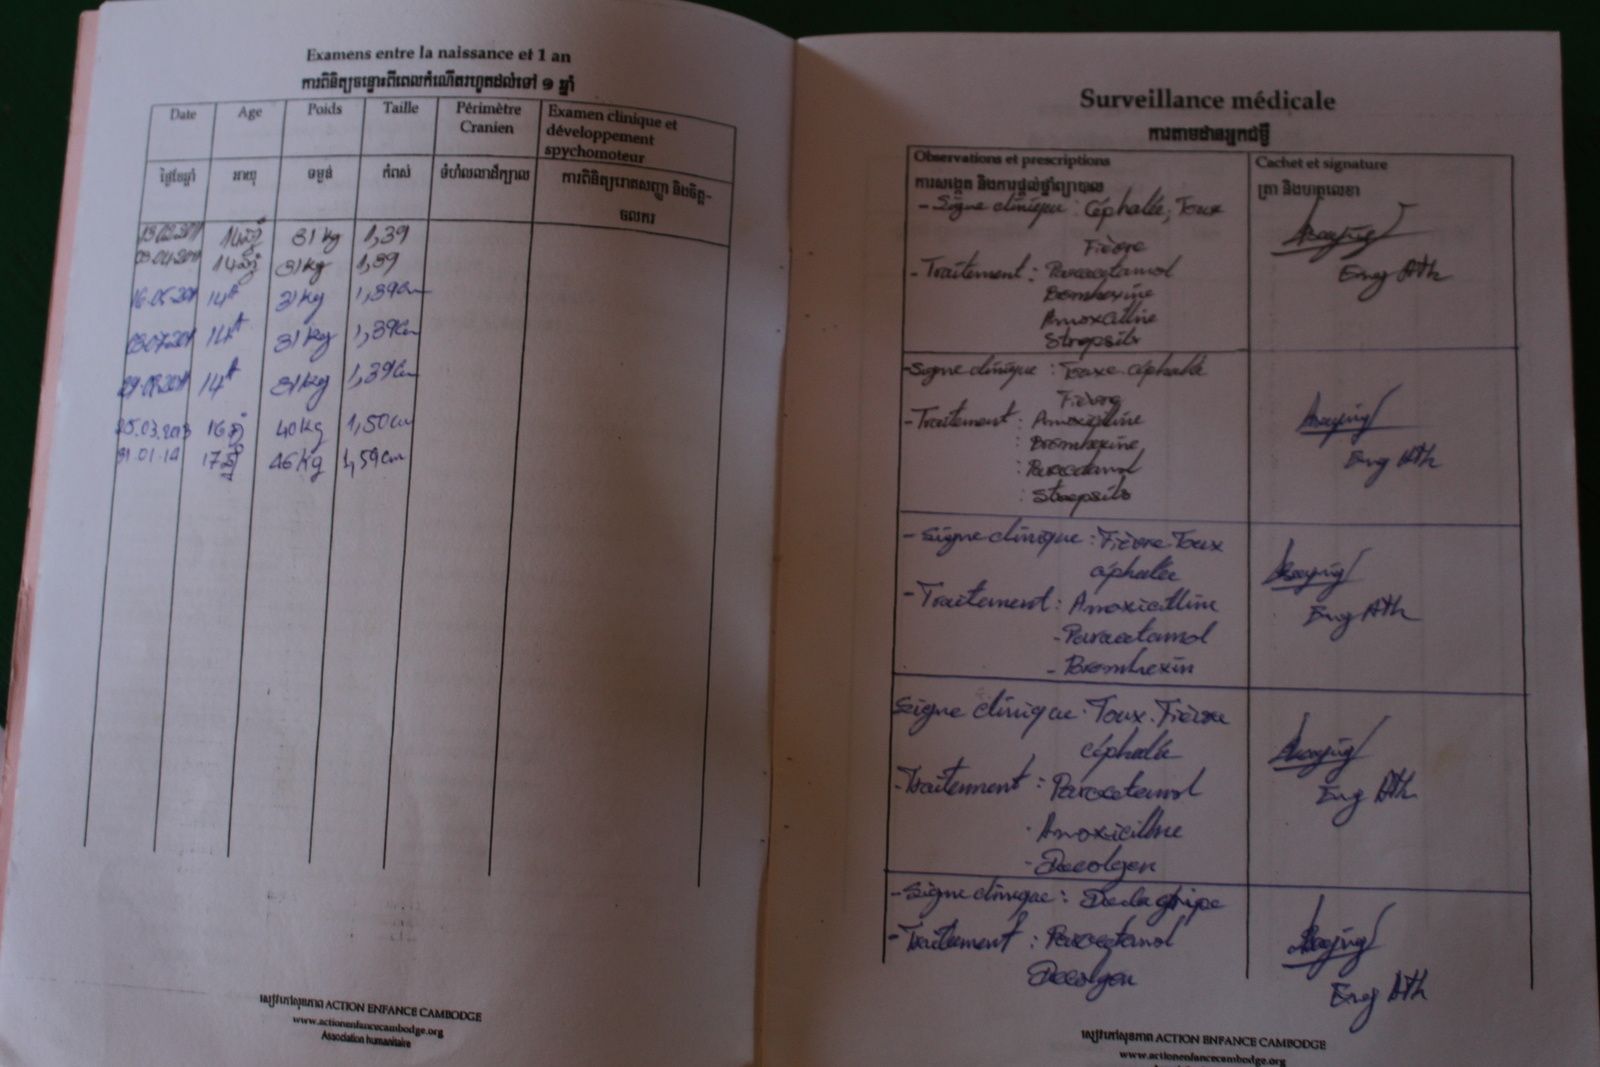 Examens entre la naissance et 1 an
ការពិនិត្យចន្លោះពីពេលកំណើតរហូតដល់ទៅ ១ ឆ្នាំ
Date Age Poids Taille Périmètre Cranien Examen clinique et développement spychomoteur
ថ្ងៃខែឆ្នាំ អាយុ ទម្ងន់ កំពស់ ទំហំលលាដ៍ក្បាល ការពិនិត្យរោគសញ្ញា និងចិត្ត-ចលករ
14ឆ្នាំ 31 kg 1,39
14ឆ្នាំ 31kg 1,39
14A 31kg 1,39cm
14A 31kg 1,39cm
14A 31kg 1,39cm
25.03.2013 16ឆ្នាំ 40kg 1,50cm
31.01.14 17ឆ្នាំ 46kg 1,59cm
ACTION ENFANCE CAMBODGE
www.actionenfancecambodge.org
Association humanitaire
Surveillance médicale
ការតាមដានអ្នកជម្ងឺ
Observations et prescriptions Cachet et signature
ការសង្កេត និងការផ្តល់ថ្នាំព្យាបាល ត្រា និងហត្ថលេខា
- Signe clinique : Céphalée, Toux
Fièvre
- Traitement : Paracetamol
Bromhexine
Amoxicilline
Strepsils
Eng Ath
- Signe clinique : Toux. céphalée
Fièvre
- Traitement : Amoxicilline
: Bromhexine
: Paracetamol
: Strepsils
Eng Ath
- Signe clinique : Fièvre. Toux
céphalée
- Traitement : Amoxicilline
- Paracetamol
- Bromhexin
Eng Ath
Signe clinique. Toux. Fièvre
céphalée
- Traitement : Paracetamol
. Amoxicilline
- Decolgen
Eng Ath
- Signe clinique : De la gripe
- Traitement : Paracetamol
Decolgen
Eng Ath
ACTION ENFANCE CAMBODGE
www.actionenfancecambodge.org